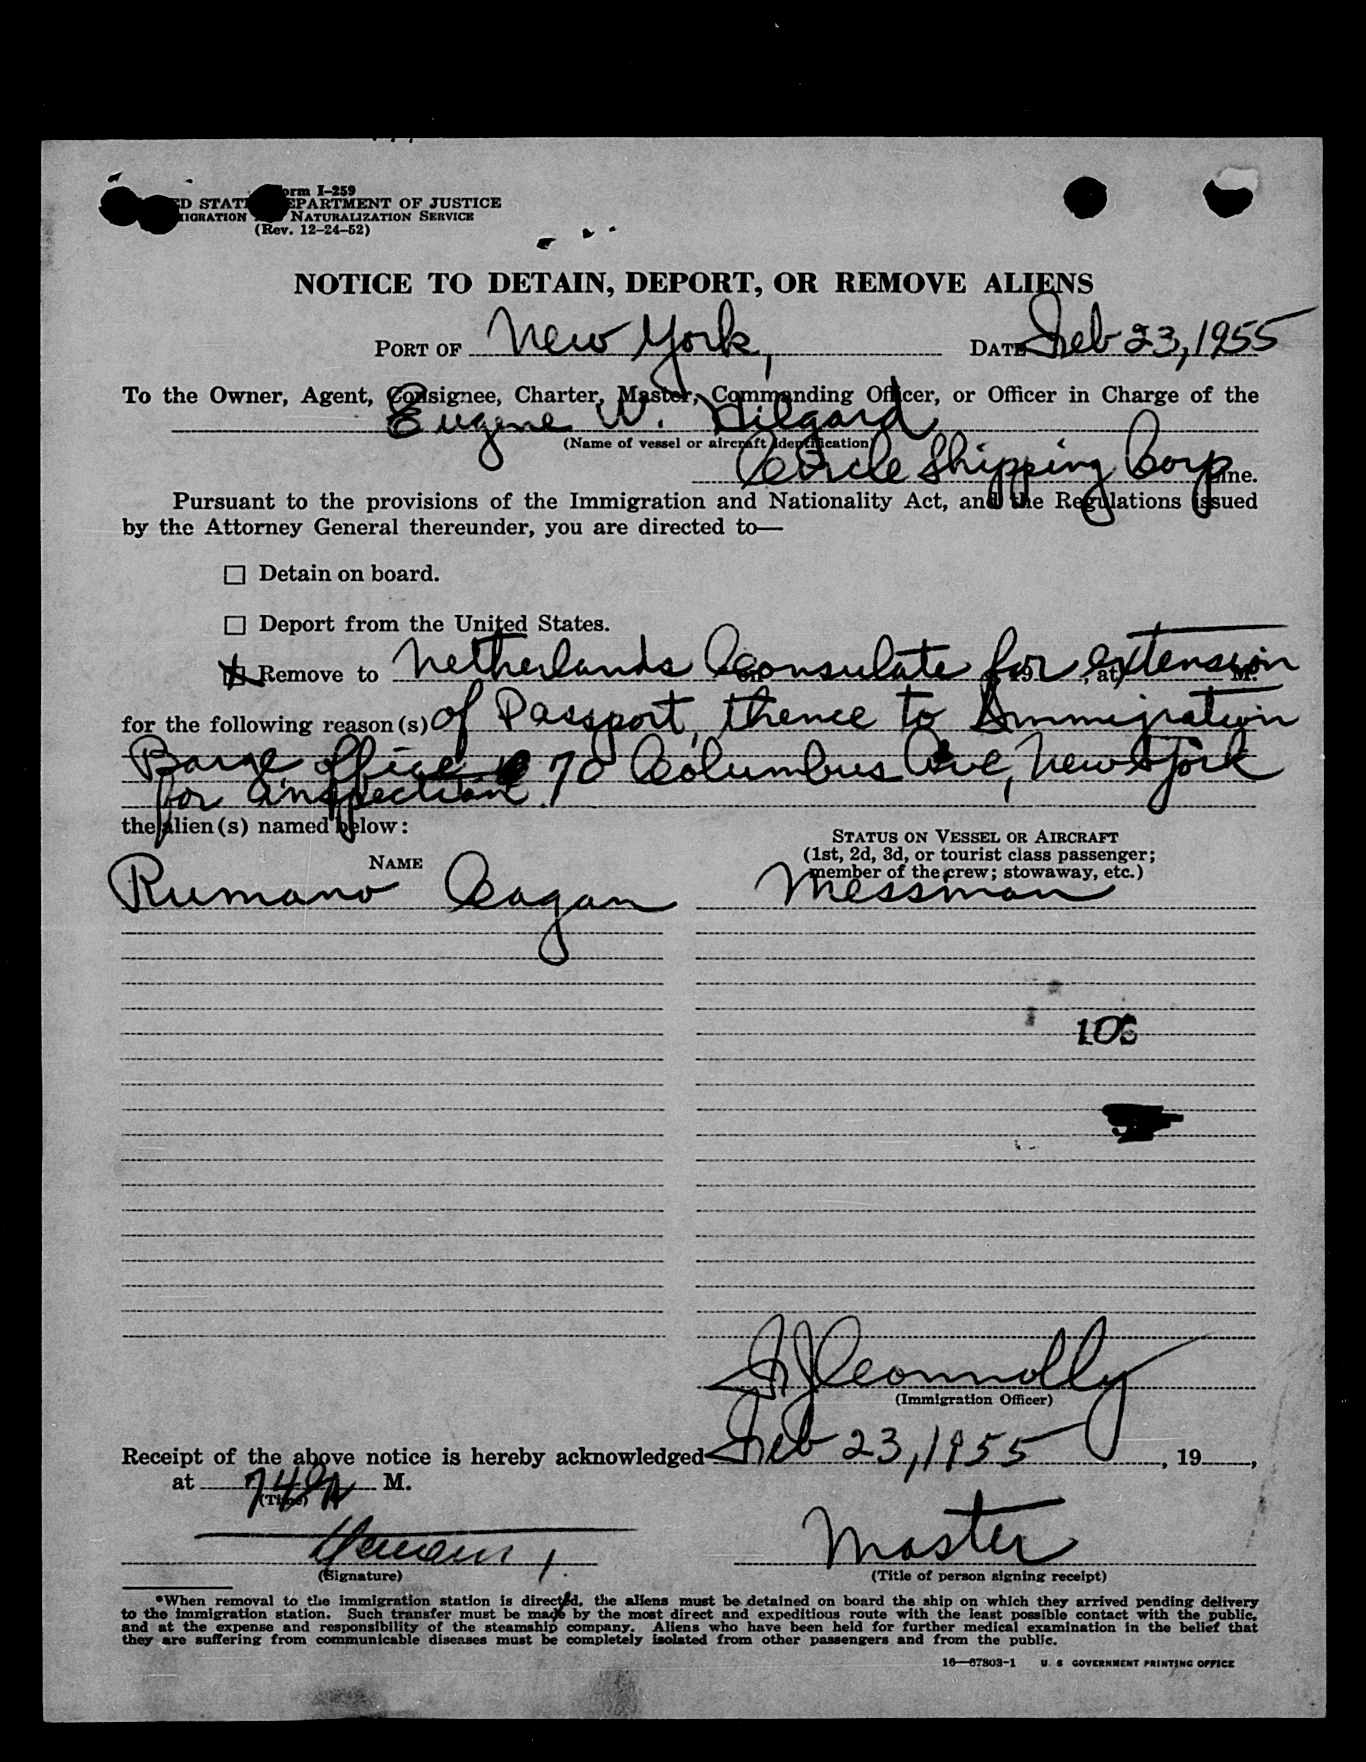 Form I-259
UNITED STATES DEPARTMENT OF JUSTICE
IMMIGRATION AND NATURALIZATION SERVICE
(Rev. 12-24-52)
NOTICE TO DETAIN, DEPORT, OR REMOVE ALIENS
PORT OF New York, DATE Feb 23, 1955
To the Owner, Agent, Consignee, Charter, Master, Commanding Officer, or Officer in Charge of the
Eugene W. Hilgard
(Name of vessel or aircraft identification)
Circle Shipping Corp Line.
Pursuant to the provisions of the Immigration and Nationality Act, and the Regulations issued
by the Attorney General thereunder, you are directed to—
☐ Detain on board.
☐ Deport from the United States.
☒ Remove to Netherlands Consulate for extension
for the following reason(s) of Passport, thence to Immigration
Barge Office 70 Columbus Ave, New York
for inspection
the alien(s) named below:
NAME
STATUS ON VESSEL OR AIRCRAFT
(1st, 2d, 3d, or tourist class passenger;
member of the crew; stowaway, etc.)
Rumano Cagan Messman
(Immigration Officer)
Receipt of the above notice is hereby acknowledged Feb 23, 1955, 19___,
at M.
(Time)
Master
(Signature) (Title of person signing receipt)
*When removal to the immigration station is directed, the aliens must be detained on board the ship on which they arrived pending delivery
to the immigration station. Such transfer must be made by the most direct and expeditious route with the least possible contact with the public,
and at the expense and responsibility of the steamship company. Aliens who have been held for further medical examination in the belief that
they are suffering from communicable diseases must be completely isolated from other passengers and from the public.
16—67803-1 U. S GOVERNMENT PRINTING OFFICE